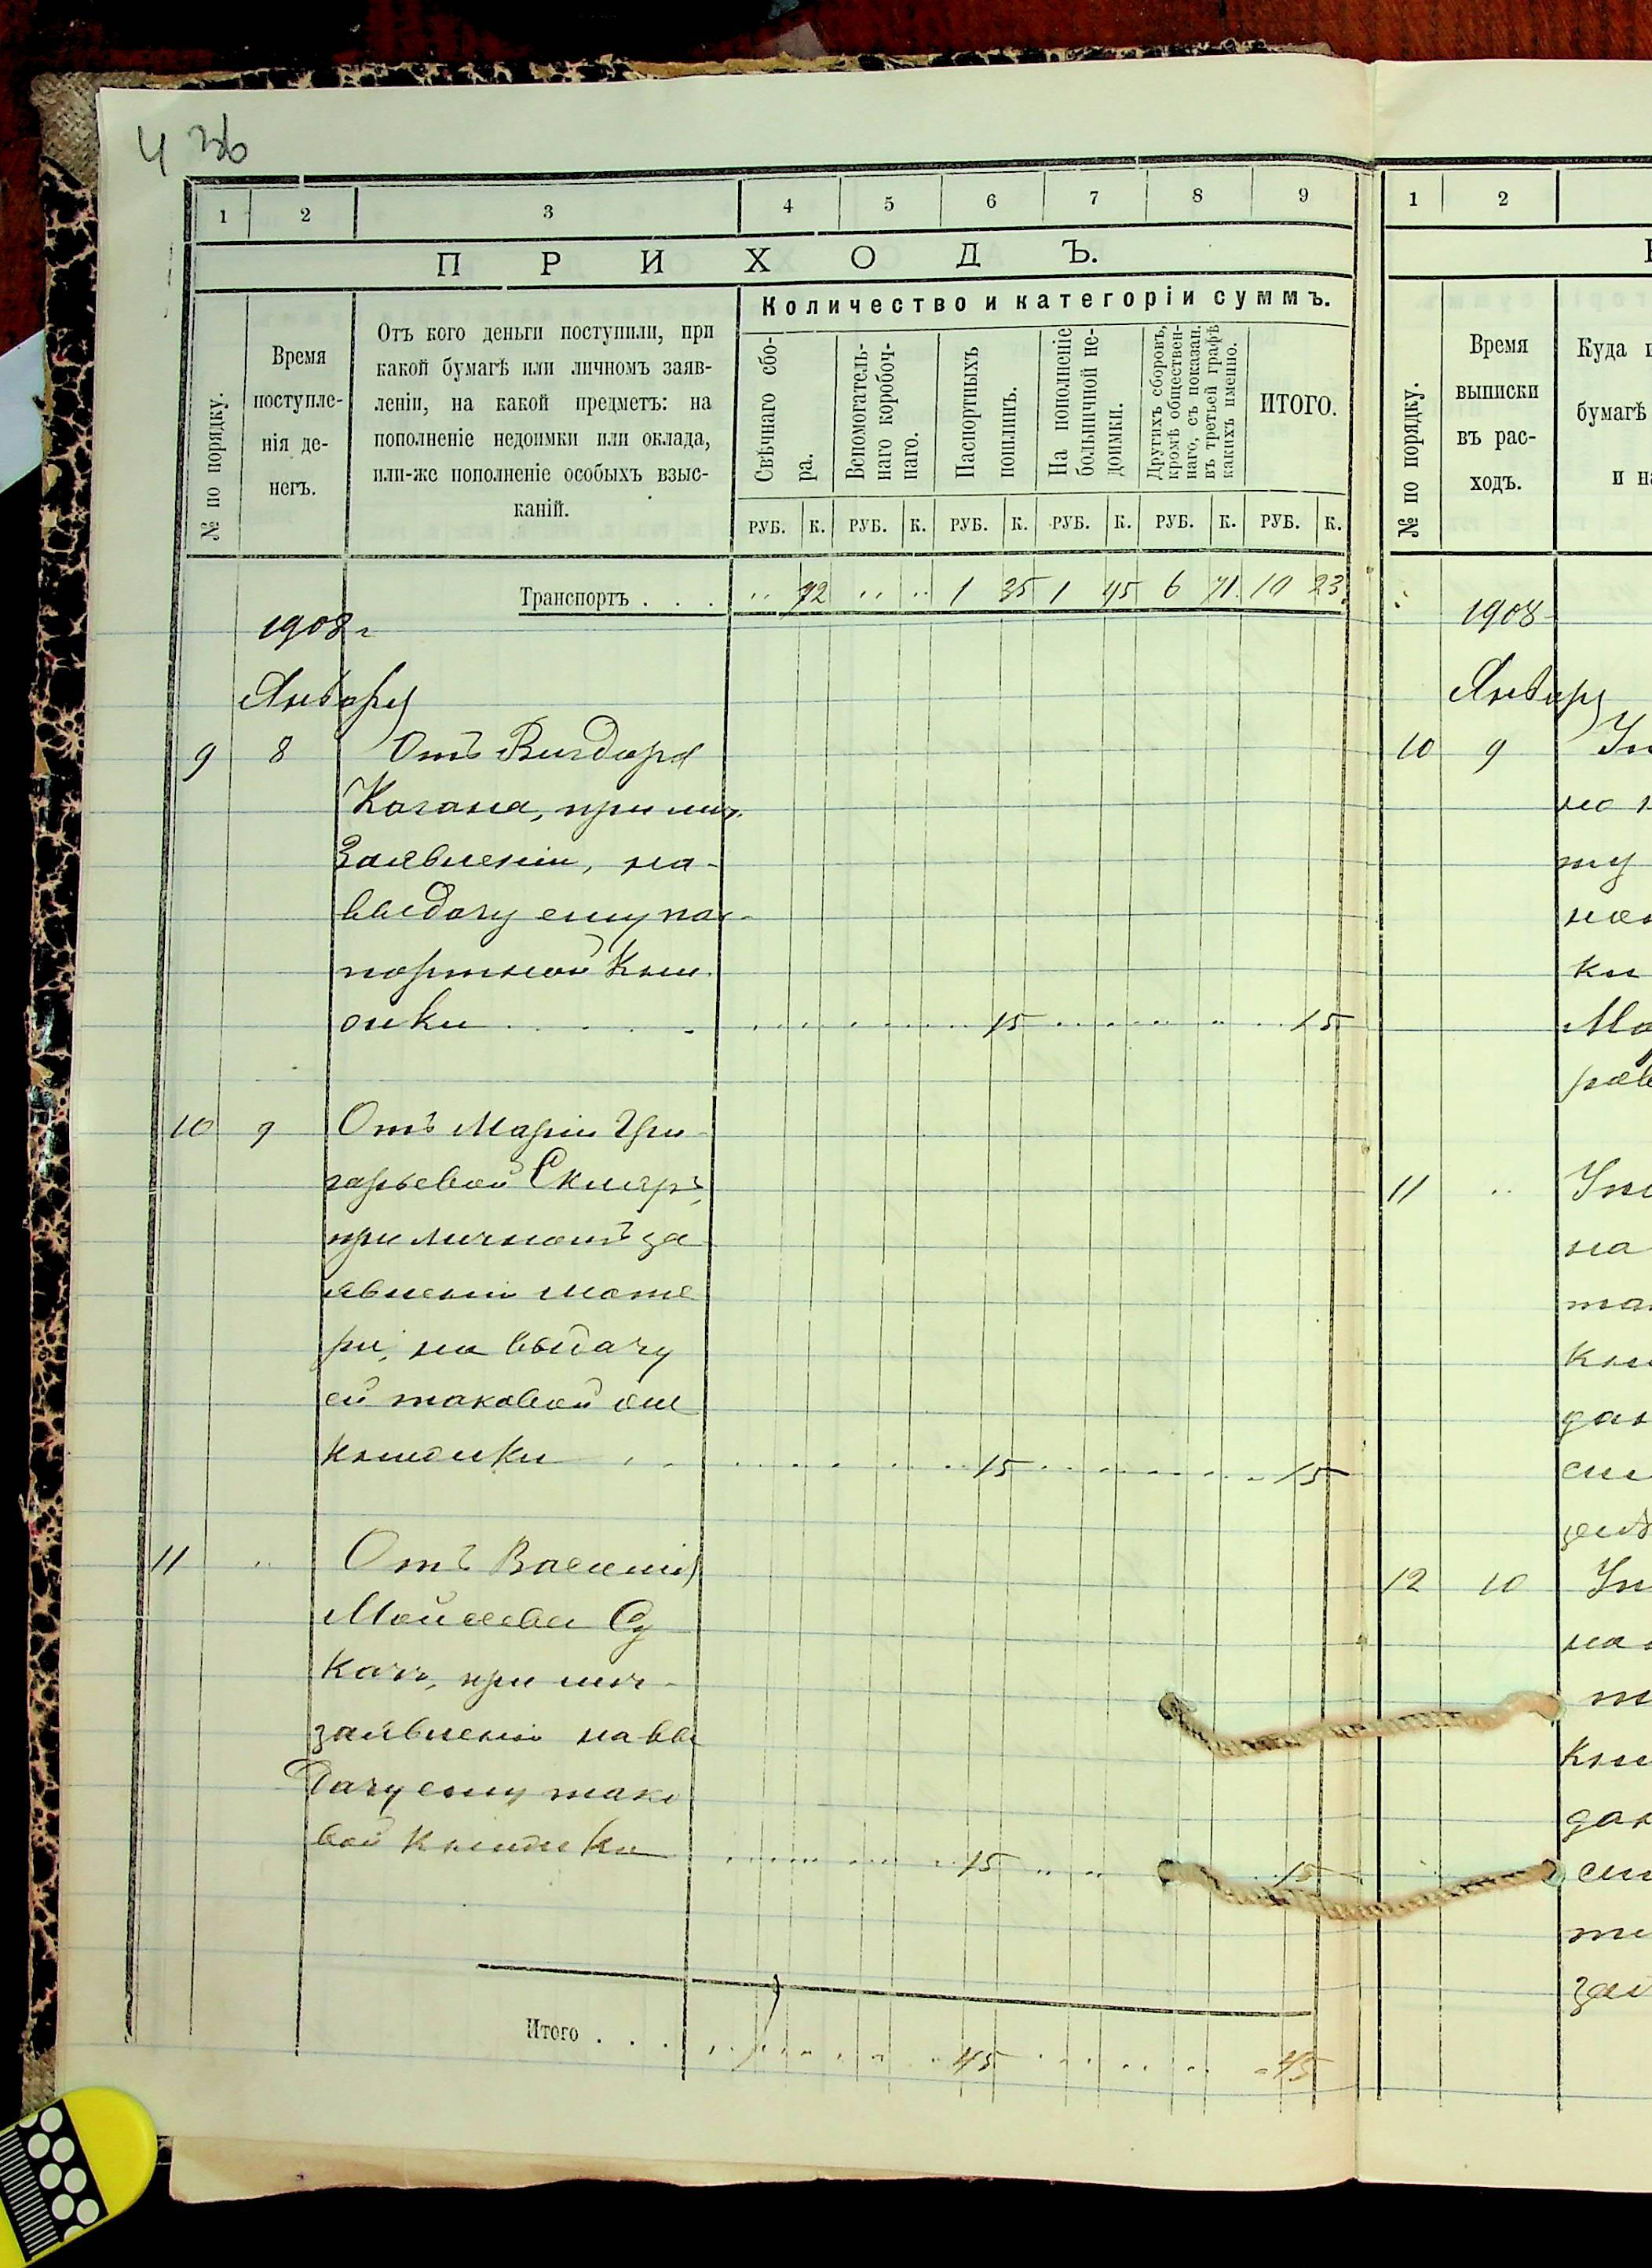 4 36
1 2 3 4 5 6 7 8 9
ПРИХОДЪ.
№ по порядку.
Время
поступле-
нія де-
негъ.
Отъ кого деньги поступили, при
какой бумагѣ или личномъ заяв-
леніи, на какой предметъ: на
пополненіе недоимки или оклада,
или-же пополненіе особыхъ взыс-
каній.
Количество и категоріи суммъ.
Свѣчнаго сбо-
ра.
Вспомогатель-
наго коробоч-
наго.
Паспортныхъ
пошлинъ.
На пополненіе
больничной не-
доимки.
Другихъ сборовъ,
кромѣ обществен-
наго, съ показан.
въ третьей графѣ
какихъ именно.
ИТОГО.
РУБ. К. РУБ. К. РУБ. К. РУБ. К. РУБ. К. РУБ. К.
Транспортъ . . . 72 1 35 1 45 6 71 10 23
1908 г
Января
9 8 Отъ Вигдора
Кагана, при лич.
заявленіи, на
выдачу ему пас-
портной Кни
жки 15 15
10 9 Отъ Маріи Гри
горьевой Скляръ,
при личномъ за
явленіи мате
ри, на выдачу
ей таковой же
книжки 15 15
11 " Отъ Василія
Мойсеева
при лич-
заявленіи на вы
дачу ему тако
вой книжки 15 15
Итого . . . 45 45
1 2
№ по порядку.
Время
выписки
въ рас-
ходъ.
Куда
бумагѣ
и
1908
Января
10 9
11 "
12 10